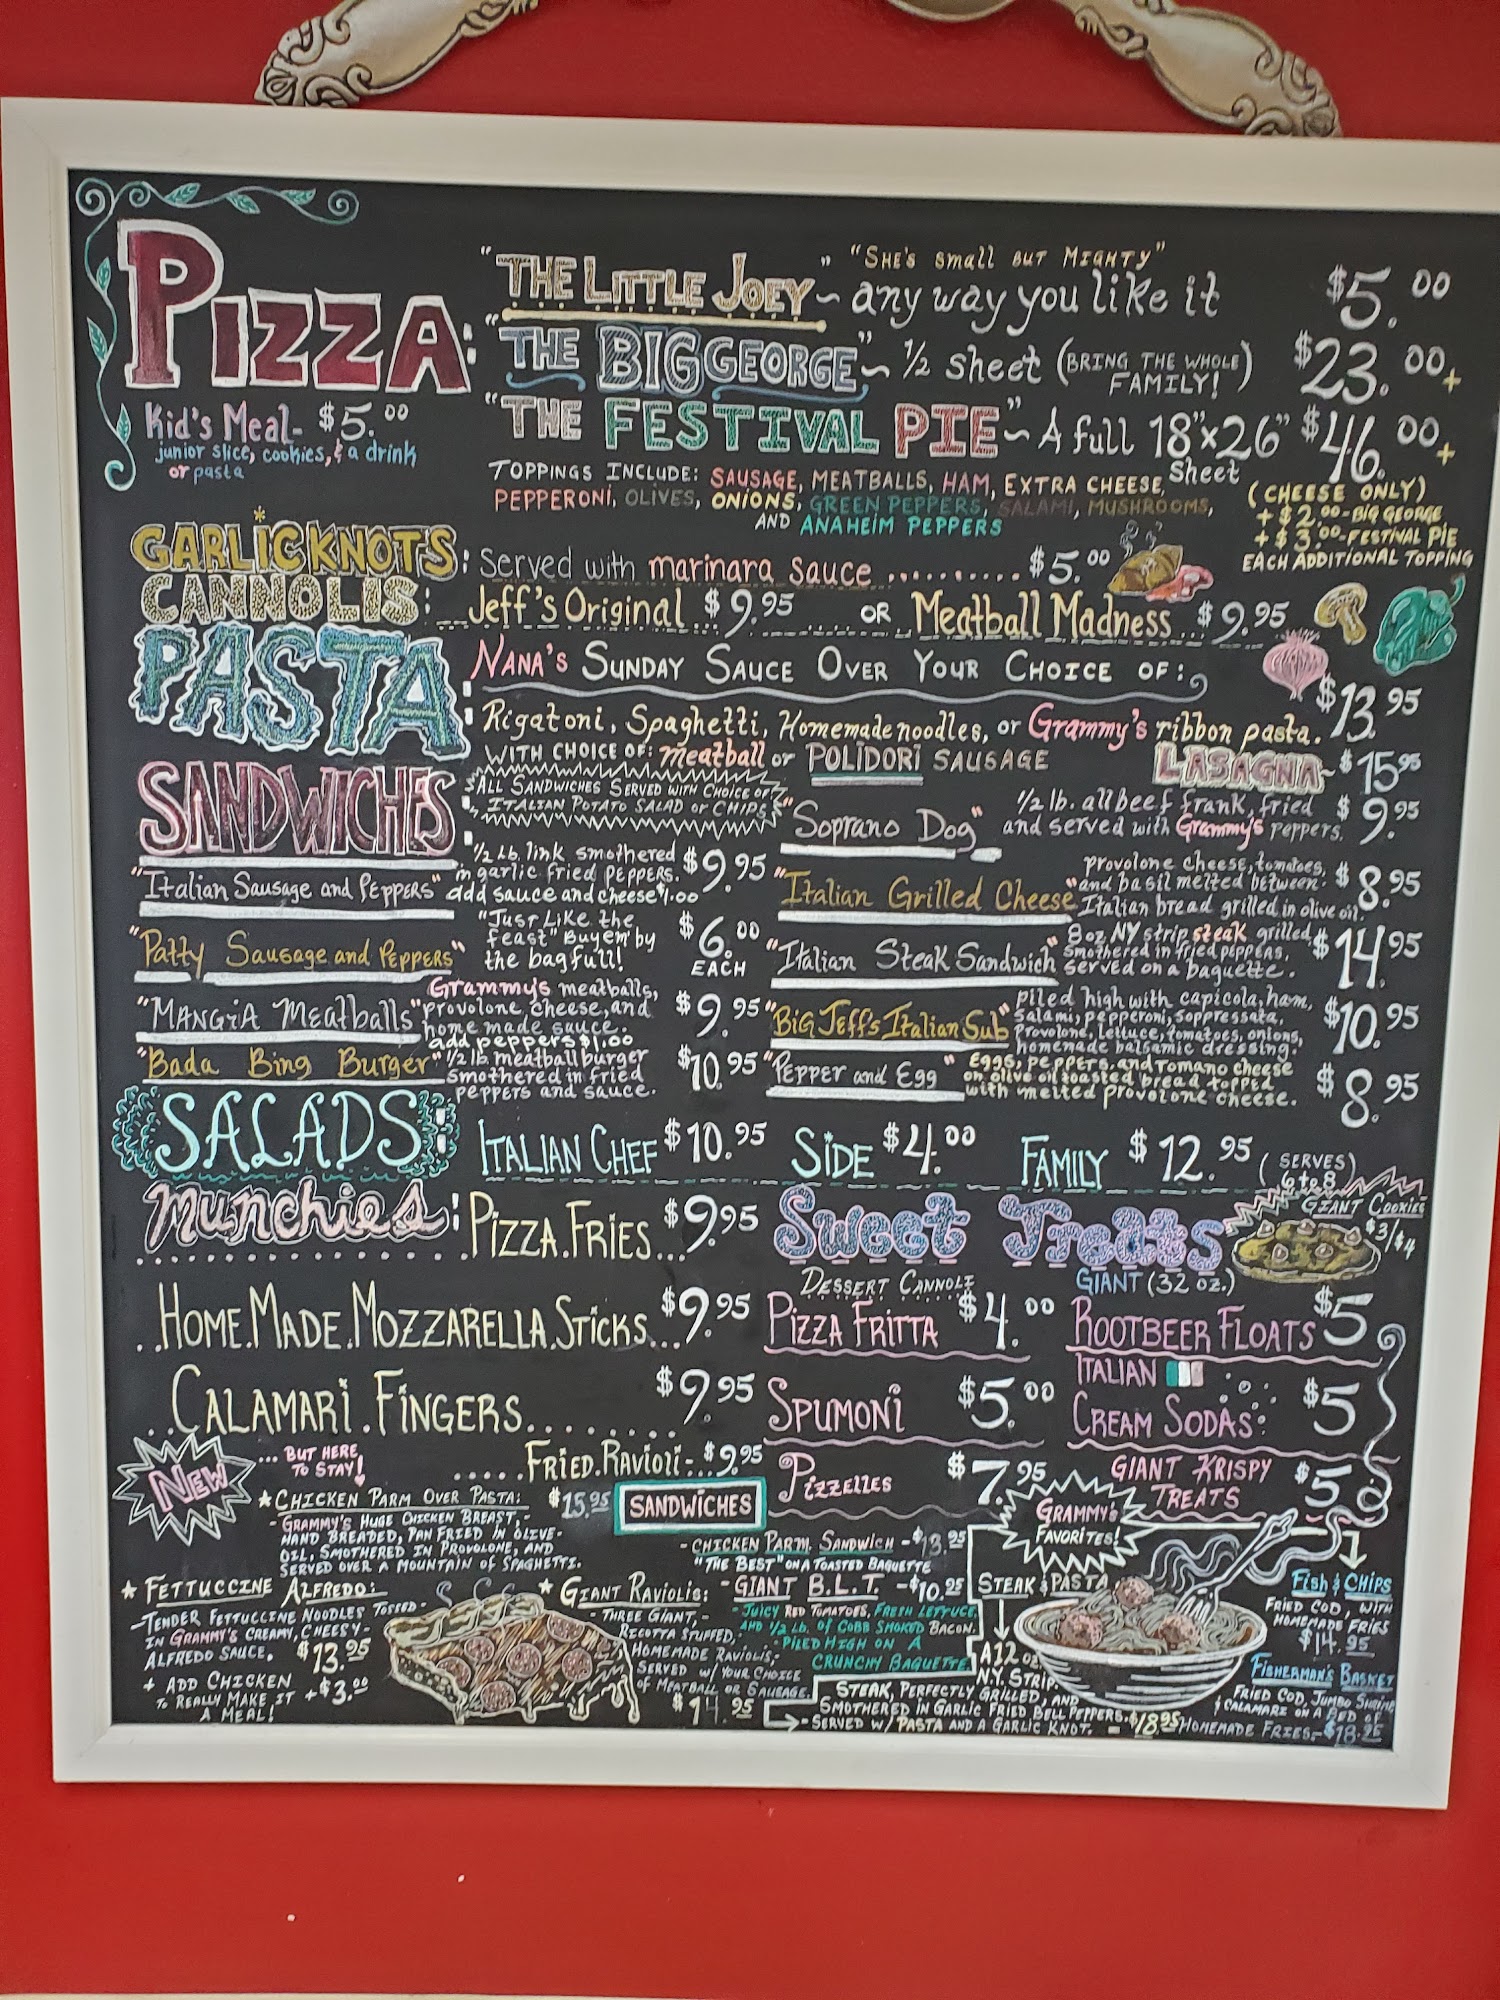 PIZZA:
"THE LITTLE JOEY" ~ "SHE'S small BUT MIGHTY" any way you like it $5.00
"THE BIG GEORGE" ~ 1/2 sheet (BRING THE WHOLE FAMILY!) $23.00+
"THE FESTIVAL PIE" ~ A full 18"x26" Sheet $46.00+
Kid's Meal- $5.00
junior slice, cookies, & a drink
or pasta
TOPPINGS INCLUDE: SAUSAGE, MEATBALLS, HAM, EXTRA CHEESE,
PEPPERONI, OLIVES, ONIONS, GREEN PEPPERS, SALAMI, MUSHROOMS,
AND ANAHEIM PEPPERS
(CHEESE ONLY)
+ $2.00-BIG GEORGE
+ $3.00-FESTIVAL PIE
EACH ADDITIONAL TOPPING
GARLIC KNOTS: Served with marinara sauce ......... $5.00
CANNOLIS: Jeff's Original $9.95 .... OR Meatball Madness $9.95
PASTA:
NANA'S SUNDAY SAUCE OVER YOUR CHOICE OF:
Rigatoni, Spaghetti, Homemade noodles, or Grammy's ribbon pasta. $13.95
WITH CHOICE OF: meatball or POLIDORI SAUSAGE
LASAGNA~ $15.95
SANDWICHES:
ALL SANDWICHES SERVED WITH CHOICE OF
ITALIAN POTATO SALAD or CHIPS
"Italian Sausage and PEPPERS"
1/2 Lb. link smothered
in garlic fried PEPPERS.
add sauce and cheese $1.00
$9.95
"Patty Sausage and PEPPERS"
"JUST LIKE the
feast" Buy em' by
the bag full!
$6.00
EACH
"MANGiA Meatballs"
Grammy's meatballs,
provolone cheese, and
home made sauce.
add peppers $1.00
$9.95
"Bada Bing Burger"
1/2 lb. meatball burger
smothered in fried
peppers and sauce.
$10.95
"Soprano Dog"
1/2 lb. all beef frank, fried
and served with Grammy's peppers.
$9.95
"Italian Grilled Cheese"
provolone cheese, tomatoes,
and basil melted between
Italian bread grilled in olive oil.
$8.95
"Italian Steak Sandwich"
8 oz. NY strip steak grilled,
smothered in fried peppers,
served on a baguette.
$14.95
"BiG JEff's Italian Sub"
piled high with capicola, ham,
Salami, pepperoni, soppressata,
Provolone, lettuce, tomatoes, onions,
homemade balsamic dressing.
$10.95
"Pepper and Egg"
Eggs, peppers, and romano cheese
on olive oil toasted bread topped
with melted provolone cheese.
$8.95
SALADS:
ITALIAN CHEF $10.95 SIDE $4.00 FAMILY $12.95 (SERVES) 6 to 8
munchies:
PIZZA.FRIES...$9.95
HOME.MADE.MOZZARELLA.STICKS...$9.95
CALAMARI.FINGERS....... $9.95
.....FRIED.RAVIOLI-..$9.95
Sweet Treats
GIANT COOKIES
$3/$4
DESSERT CANNOLI
PIZZA FRITTA $4.00
SPUMONI $5.00
PIZZELLES $7.95
GIANT (32 oz.)
ROOTBEER FLOATS $5
ITALIAN
CREAM SODAS: $5
GIANT KRISPY
TREATS $5
NEW
...BUT HERE
TO STAY!
★ CHICKEN PARM OVER PASTA: $15.95
- GRAMMY'S HUGE CHICKEN BREAST,-
HAND BREADED, PAN FRIED IN OLIVE-
OIL, SMOTHERED IN PROVOLONE, AND
SERVED OVER A MOUNTAIN OF SPAGHETTI.
★ FETTUCCINE ALFREDO:
-TENDER FETTUCCINE NOODLES TOSSED-
IN GRAMMY'S CREAMY, CHEESY-
ALFREDO SAUCE. $13.95
+ ADD CHICKEN
TO REALLY MAKE IT +$3.00
A MEAL!
★ GIANT RAVIOLIS:
- THREE GIANT,-
RICOTTA STUFFED,
HOMEMADE RAVIOLIS,-
SERVED W/ YOUR CHOICE
OF MEATBALL OR SAUSAGE.
$14.95
SANDWICHES
- CHICKEN PARM. SANDWICH -$13.95
"THE BEST" ON A TOASTED BAGUETTE
- GIANT B.L.T. -$10.95
- JUICY RED TOMATOES, FRESH LETTUCE,
AND 1/2 LB. OF COBB SMOKED BACON.
- PILED HIGH ON A
CRUNCHY BAGUETTE
GRAMMY'S
FAVORITES!
STEAK & PASTA
A 12 oz.
N.Y. STRIP
STEAK, PERFECTLY GRILLED, AND
SMOTHERED IN GARLIC FRIED BELL PEPPERS.
- SERVED W/ PASTA AND A GARLIC KNOT. - $18.95
Fish & CHIPS
FRIED COD, WITH
HOMEMADE FRIES
$14.95
FISHERMAN'S BASKET
FRIED COD, JUMBO SHRIMP,
& CALAMARI ON A BED OF
HOMEMADE FRIES-$18.95